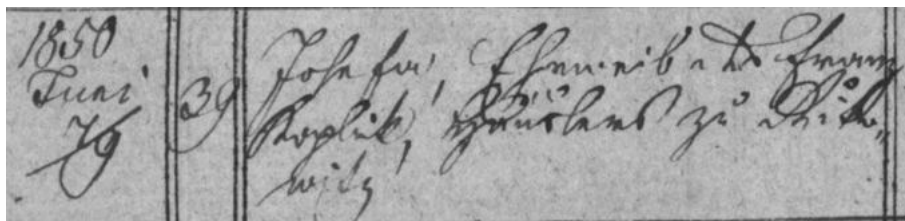 1850
Juni
7/9
39
Josefa, Eheweib des Franz
Koplik, Häuslers zu
witz